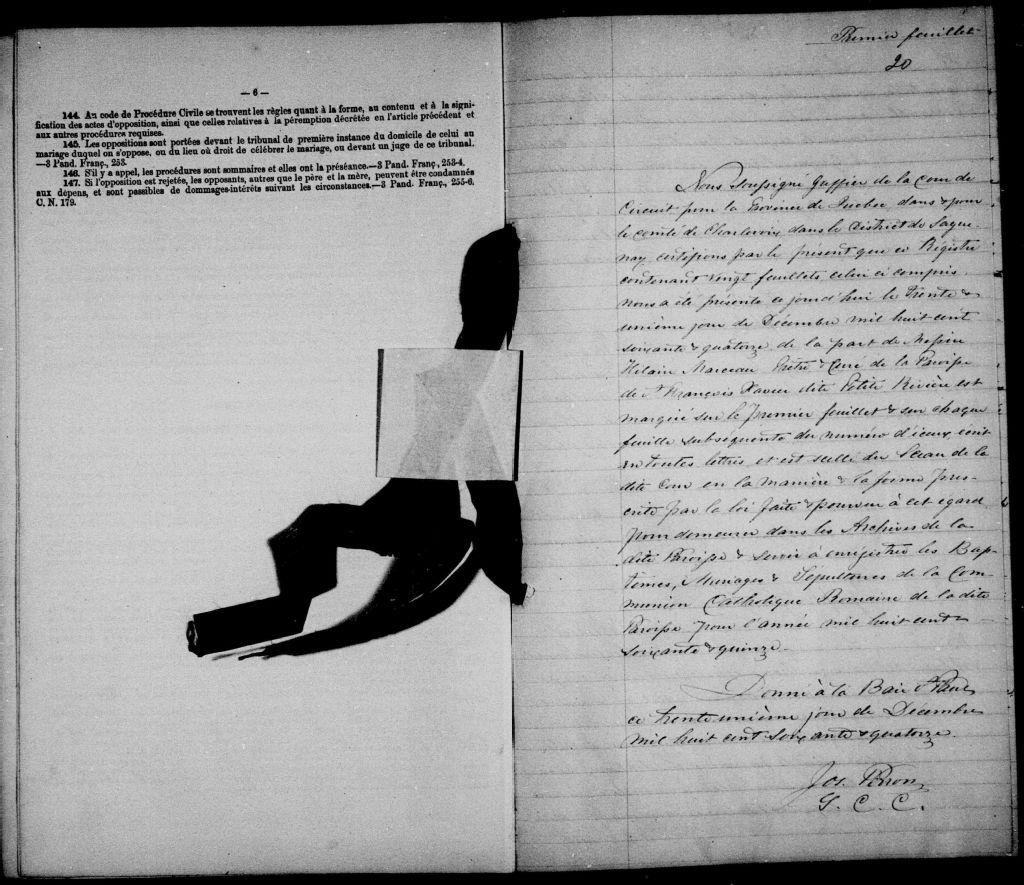 — 6 —
144. Au code de Procédure Civile se trouvent les règles quant à la forme, au contenu et à la signi-
fication des actes d'opposition, ainsi que celles relatives à la péremption décrétée en l'article précédent et
aux autres procédures requises.
145. Les oppositions sont portées devant le tribunal de première instance du domicile de celui au
mariage duquel on s'oppose, ou du lieu où droit de célébrer le mariage, ou devant un juge de ce tribunal.
—3 Pand. Franç., 253.
146. S'il y a appel, les procédures sont sommaires et elles ont la préséance.—3 Pand. Franç., 253-4.
147. Si l'opposition est rejetée, les opposants, autres que le père et la mère, peuvent être condamnés
aux dépens, et sont passibles de dommages-intérêts suivant les circonstances.—3 Pand. Franç., 255-6.
C. N. 179.
Premier feuillet
20
Nous Soussigné Greffier de la Cour de
Circuit pour la Province de Quebec dans & pour
le comté de Charlevoix dans le District de Sague-
nay, certifions par le présent que ce Régistre
contenant vingt feuillets, celui ci compris,
nous a été présenté ce jourd'hui le trente &
unième jour de Décembre mil huit cent
soixante & quatorze de la part de Messire
Hilaire Marceau Prêtre & Curé de la Paroisse
de St François Xavier dite Petite Rivière est
marqué sur le premier feuillet & sur chaque
feuille subséquente du numéro d'iceux, écrit
en toutes lettres et est scellé du Sceau de la
dite Cour en la manière & la forme pres-
crite par la loi faite & pourvue à cet égard
pour demeurer dans les Archives de la
dite Paroisse & servir à enrégistrer les Bap-
têmes, Mariages & Sépultures de la Com-
munion Catholique Romaine de la dite
Paroisse pour l'année mil huit cent
soixante & quinze.
Donné à la Baie St Paul
ce trente unième jour de Decembre
mil huit cent soixante & quatorze.
Jos. Perron
G. C. C.